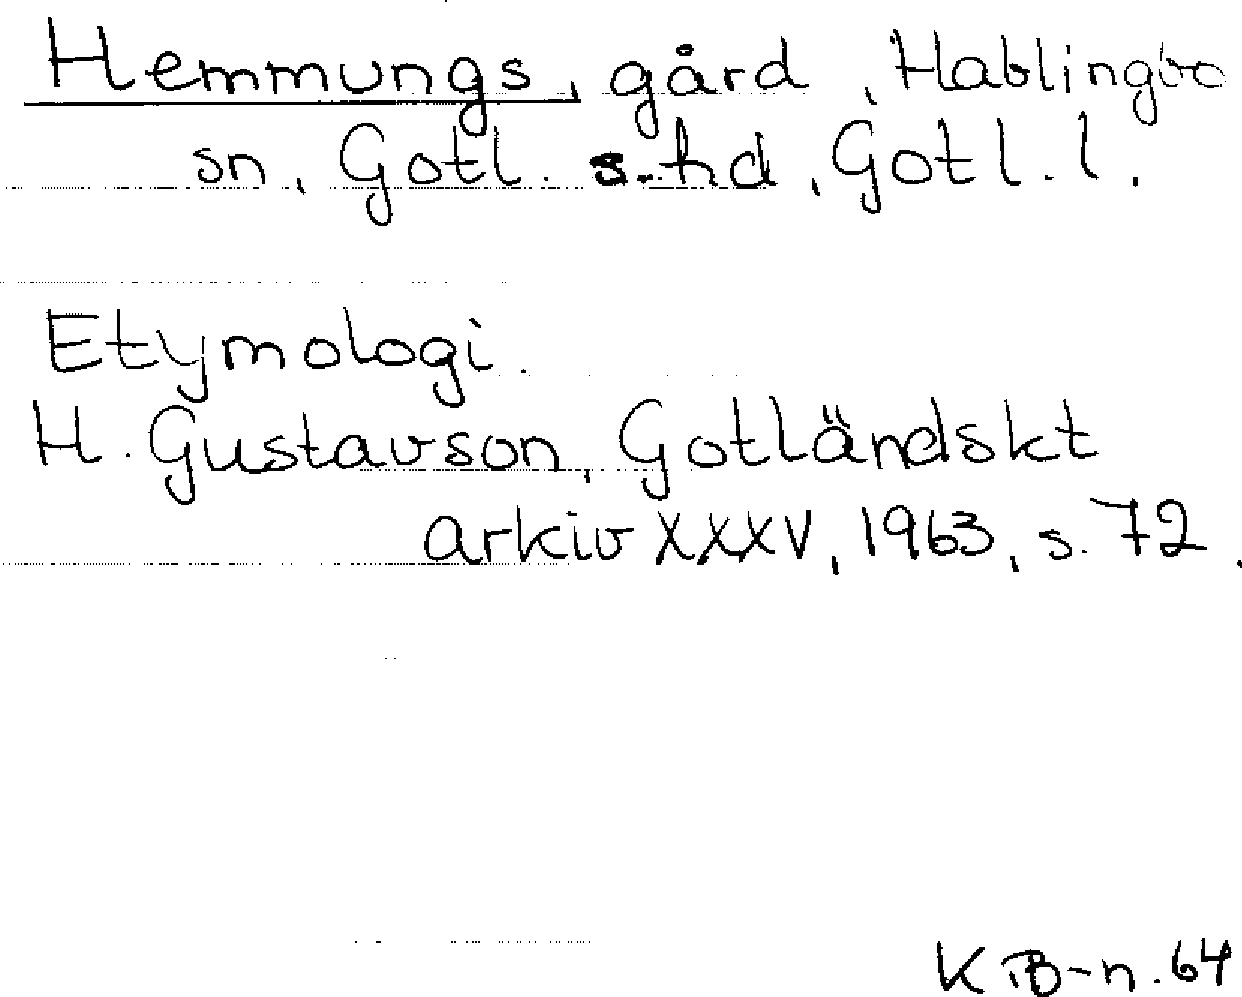 Hemmungs, gård, Hablingbo
sn, Gotl. s. hd, Gotl. l.
Etymologi.
H. Gustavson, Gotländskt
arkiv XXXV, 1963, s. 72.
64